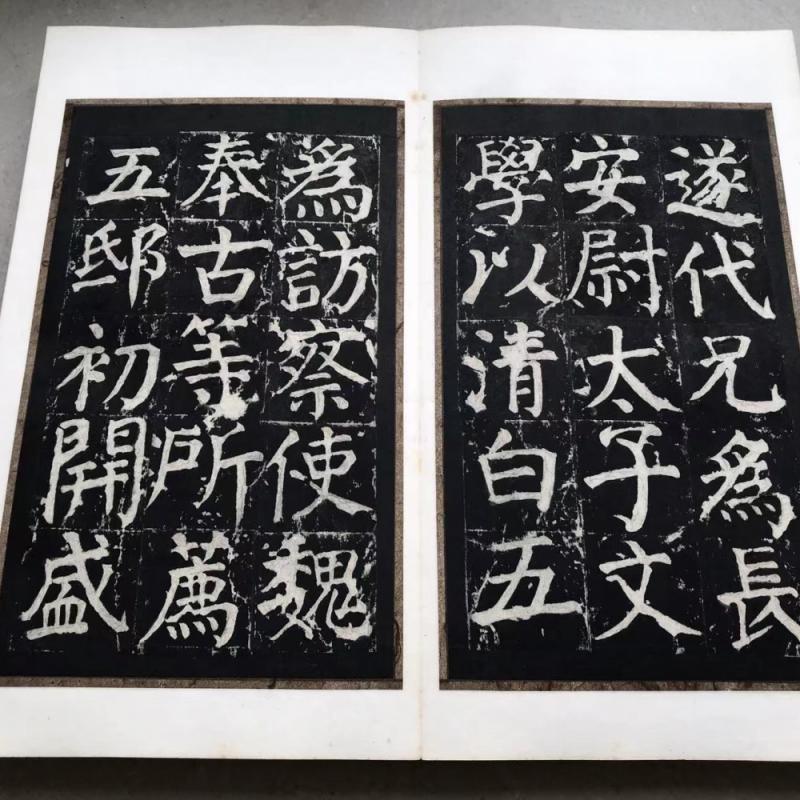 遂代兄為長
安尉太子文
學以清白五
為訪察使魏
奉古等所薦
五邸初開盛